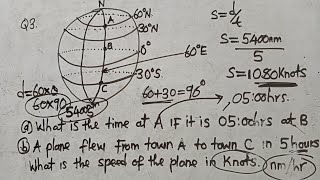 Q3.
N
60°N
A
30°N
B
0°
60°E
30°S
C
S=d/t
S=5400nm
5
S=1080Knots
d=60×θ
60×90
5400nm
60+30=90°
05:00hrs.
(a) What is the time at A IF it is 05:00hrs at B
(b) A plane flew from town A to town C in 5 hours
What is the speed of the plane in Knots. nm/hr